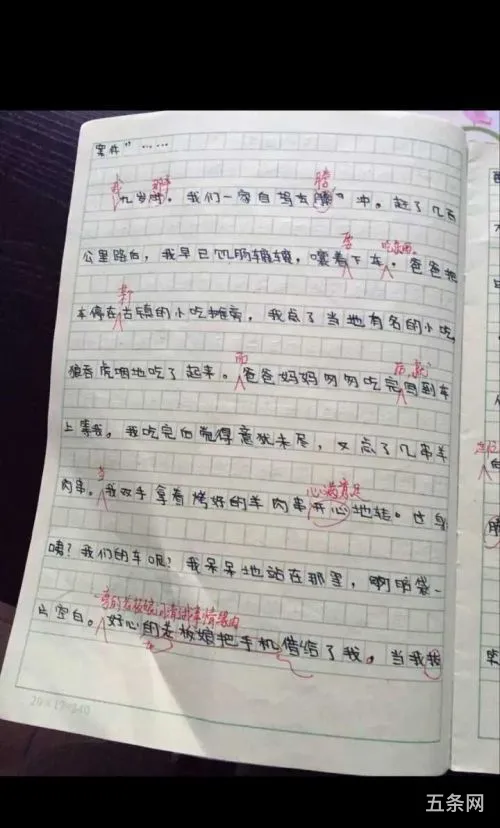 案件”……
我 那年 腾
九岁时。我们一家自驾去腾冲。赶了几百
要 吃东西。
公里路后，我早已饥肠辘辘，嚷着下车，爸爸把
车停在古镇的小吃摊旁，我点了当地有名的小吃，
而 后，就
狼吞虎咽地吃了起来。爸爸妈妈匆匆吃完回到车
上等我。我吃完后觉得意犹未尽，又点了几串羊
当 心满意足
肉串。我双手拿着烤好的羊肉串开心地转。
咦？我们的车呢？我呆呆地站在那里，脑袋一
旁的老板娘问清事情
片空白。好心的老板娘把手机借给了我。当我
20×17=340
五条网